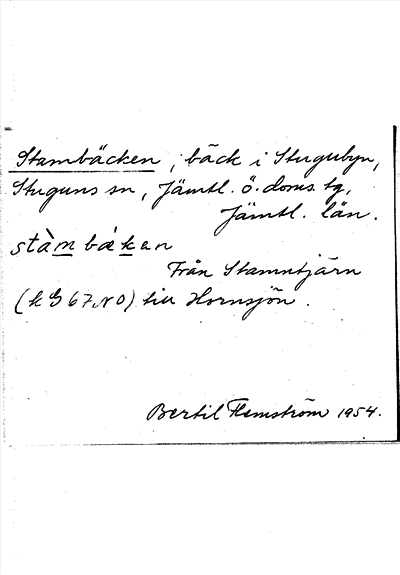 Stambäcken, bäck i Stugubyn,
Stuguns sn, Jämtl. ö. doms. tg,
Jämtl. län.
stàm bäkan
Från Stamntjärn
(k G 67 NO) till Hornsjön.
Bertil Flemström 1954.